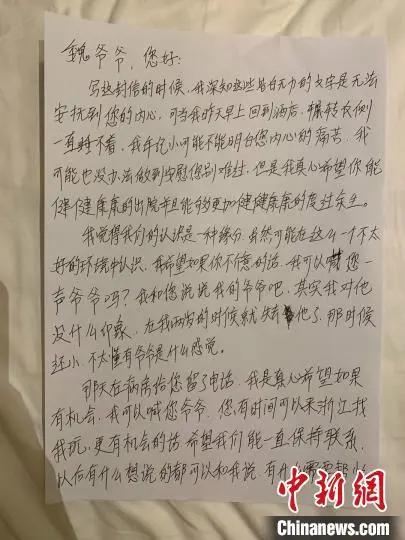 魏爷爷，您好：
写这封信的时候，我深知这些苍白无力的文字是无法
安抚到您的内心，可当我昨天早上回到酒店，辗转反侧
一直睡不着，我年纪小可能不能明白您内心的痛苦，我
可能也没办法做到安慰您别难过，但是我真心希望你能
健健康康的出院并且能够更加健健康康的度过余生。
我觉得我们的认识是一种缘分，虽然可能在这么一个不太
好的环境中认识，我希望如果你不介意的话，我可以喊您一
声爷爷吗？我和您说说我的爷爷吧，其实我对他
没什么印象，在我两岁的时候就失去他了，那时候
还小，不太懂有爷爷是什么感觉。
那天在病房给您留了电话，我是真心希望如果
有机会，我可以喊您爷爷，您有时间可以来浙江找
我玩，更有机会的话希望我们能一直保持联系，
以后有什么想说的都可以和我说，有什么需要帮
中新网
Chinanews.com